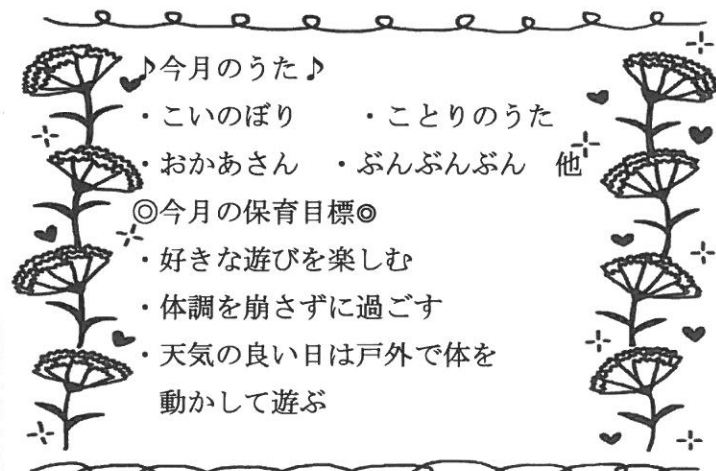 ♪今月のうた♪
・こいのぼり　　・ことりのうた
・おかあさん　・ぶんぶんぶん　他
◎今月の保育目標◎
・好きな遊びを楽しむ
・体調を崩さずに過ごす
・天気の良い日は戸外で体を
動かして遊ぶ